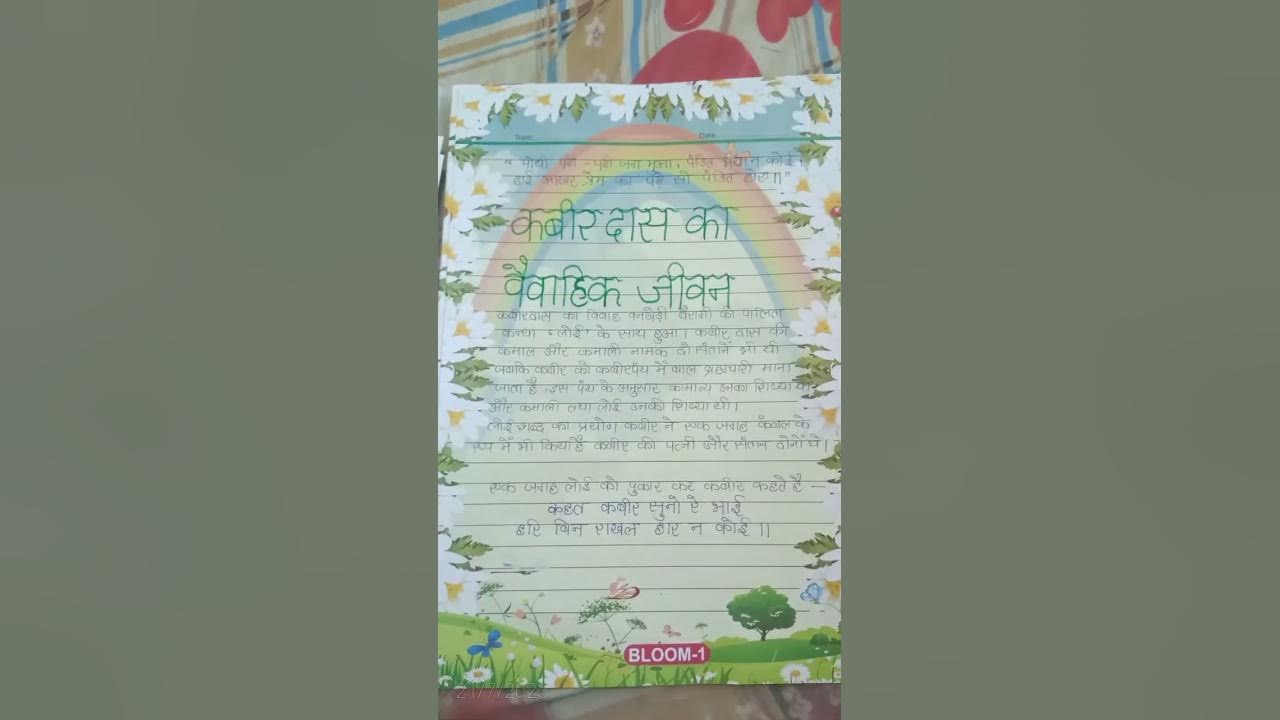 Topic
Date
" पोथी पढी -पढी जग मूआ, पंडित भया न कोई।
ढाई आखर प्रेम का पढ़े सो पंडित होए।।"
कबीर दास का
वैवाहिक जीवन
कबीरदास का विवाह वनखेड़ी बैरागी की पालिता
कन्या 'लोई' के साथ हुआ। कबीर दास की
कमाल और कमाली नामक दो संतानें भी थी
जबकि कबीर को कबीरपंथ में बाल ब्रह्मचारी माना
जाता है। इस पंथ के अनुसार कामाल्य उनका शिष्य था
और कमाली तथा लोई उनकी शिष्या थी।
लोई शब्द का प्रयोग कबीर ने एक जगह कंबल के
रूप में भी किया है कबीर की पत्नी और संतान दोनों थे।
एक जगह लोई को पुकार कर कबीर कहते है –
कहत कबीर सुनो रे भाई
हरि बिन राखल हार न कोई।।
BLOOM-1
21/7/2023